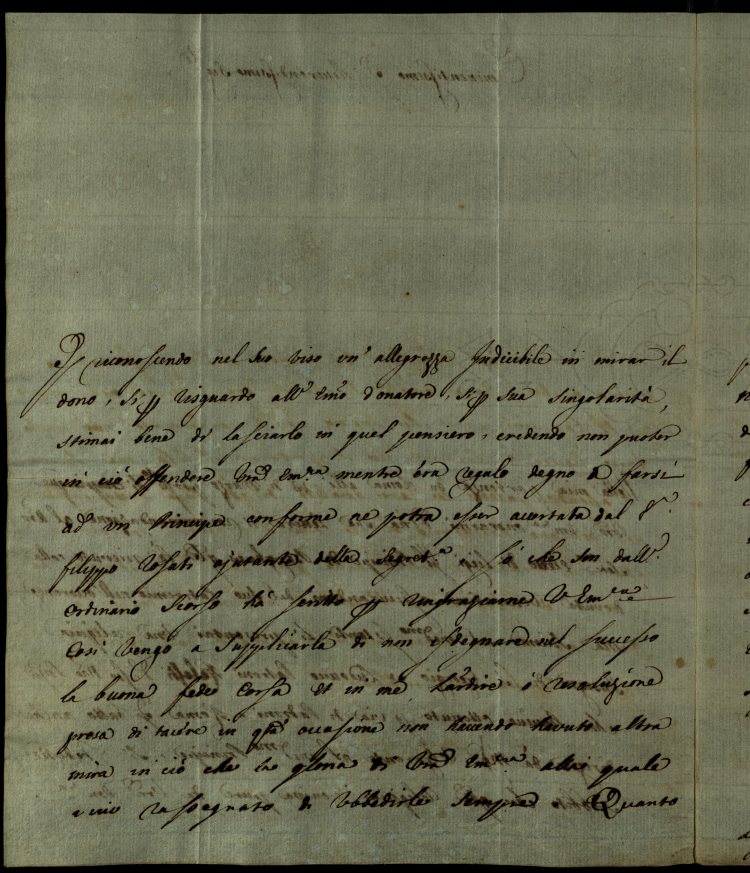 riconoscendo nel suo viso un' allegrezza Indicibile in mirar il
dono, si p risguardo all' Emo donatore, si p sua singolarità,
stimai bene di lasciarlo in quel pensiero, credendo non poter
in ciò offendere Vrã Em.za mentre era regalo degno di farsi
ad un Principe conforme ne potrà esser accertata dal S.r
filippo rosati ajutante della Segret.a, sò che sin dall'
ordinario scorso hà scritto p ringraziarne V Em.za
Così vengo a supplicarla di non isdegnare nel successo
la buona fede corsa et in me l'ardire ò resoluzione
presa di tacere in q.ta occasione non havendo havuto altra
mira in ciò che la gloria di Vrã Em.za alla quale
vivo rassegnato di Ubbedirle sempre. Quanto